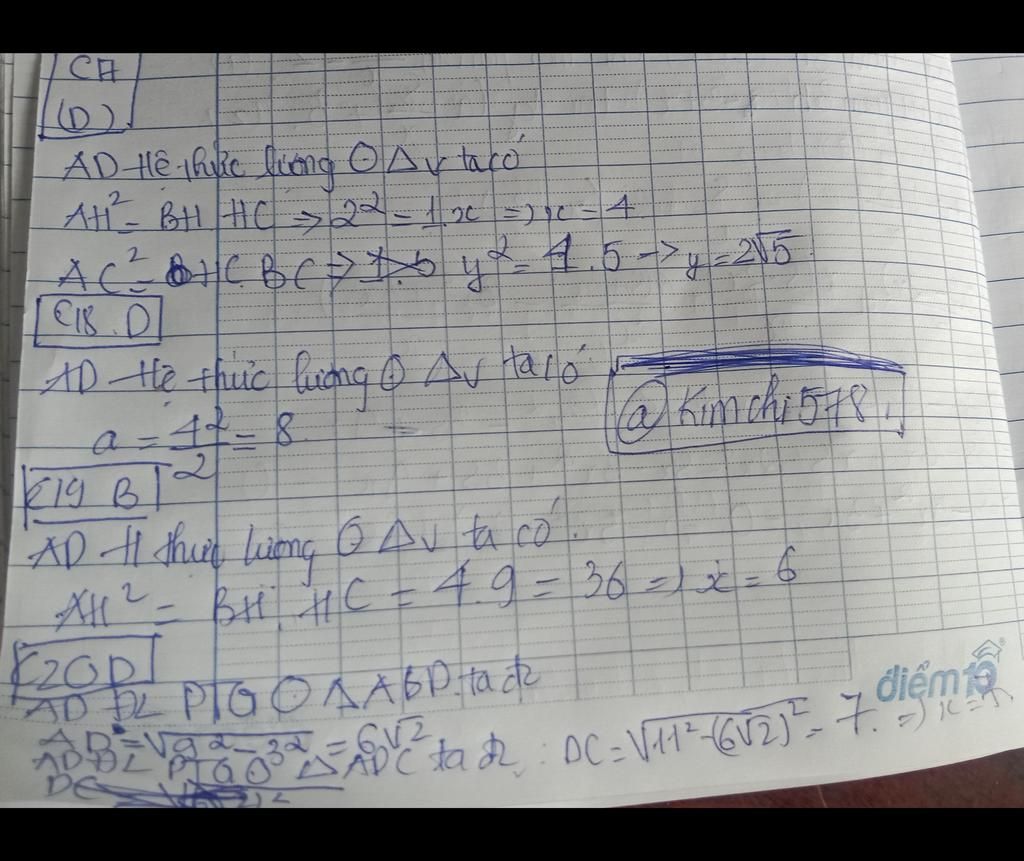 C17
(D)
AD Hệ thức lượng ⊙ Δv ta có
AH² = BH HC => 2² = 1.x => x = 4
AC² = HC. BC => y² = 4.5 -> y = 2√5
C18. D
AD Hệ thức lượng ⊙ Δv ta có
a = 4²/2 = 8
@Kimchi578.
C19 B
AD H thức lượng ⊙ Δv ta có.
AH² = BH. HC = 4.9 = 36 => x = 6
C20D
AD ĐL PTG ⊙ ΔABD. ta đc
AD = √9²-3² = 6√2
AD ĐL PTG ⊙ ΔADC ta đc : DC = √11²-(6√2)² = 7. => x =
DC
điểm10